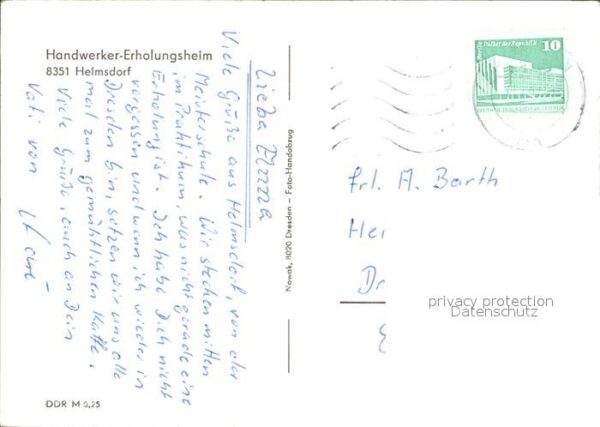 Handwerker-Erholungsheim
8351 Helmsdorf
Liebe Anna
Viele Grüße aus Helmsdorf, von der
Meisterschule. Wir stecken mitten
im Praktikum, was nicht gerade eine
Erholung ist. Ich habe Dich nicht
vergessen und wenn ich wieder in
Dresden bin, setzen wir uns alle
mal zum gemühtlichen Kaffe.
Viele Grüße, auch an Dein
Vati von
DDR M 0,25
Nowak, 8020 Dresden – Foto-Handabzug
Palast der Republik
10
Frl. A. Barth
Hei
Dr
privacy protection
Datenschutz